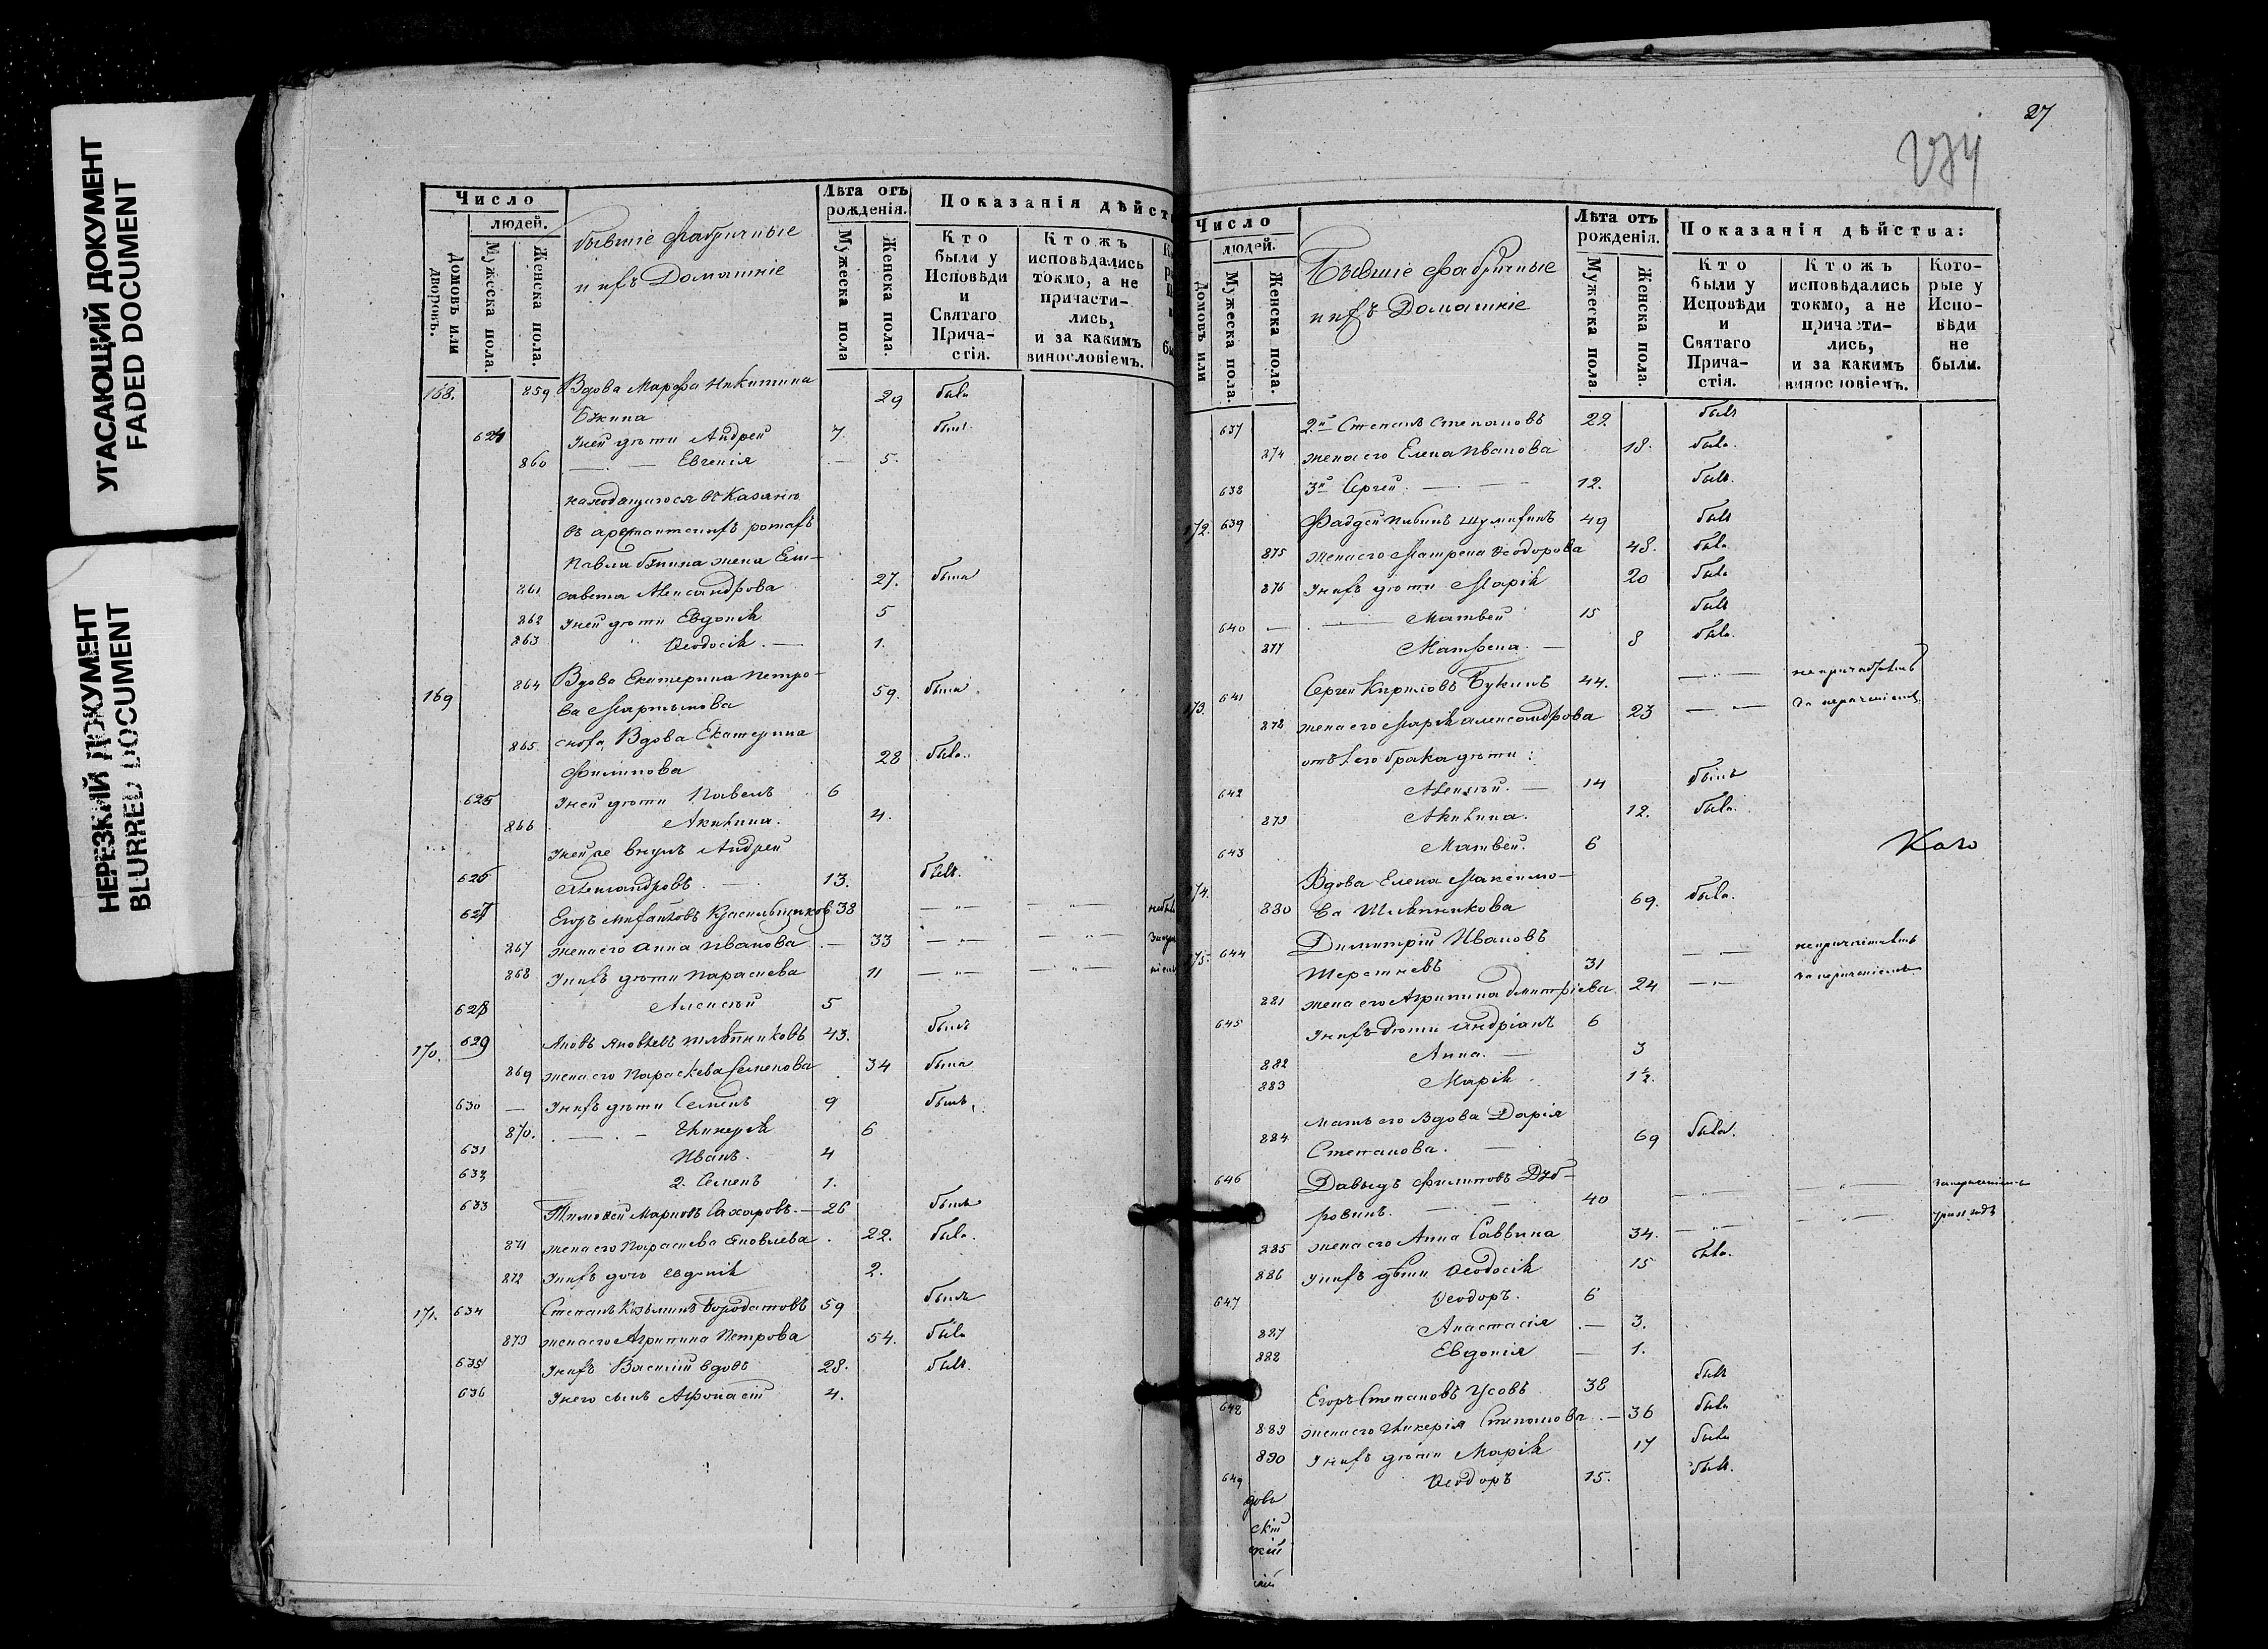 УГАСАЮЩИЙ ДОКУМЕНТ
FADED DOCUMENT
НЕРЕЗКИЙ ДОКУМЕНТ
BLURRED DOCUMENT
Число
людей.
Домовъ или дворовъ.
Мужеска пола.
Женска пола.
бывшіе Фабричные
и ихъ Домашніе
Лѣта отъ рожденія.
Мужеска пола
Женска пола.
Показанія дѣйст
Кто были у Исповѣди и Святаго Причастія.
Ктожъ исповѣдались токмо, а не причастились, и за какимъ винословіемъ.
168. 859 Вдова Марфа Никитина 29 была
624 У ней дѣти Андрей 7. былъ
860 Евгенія 5.
находящагося въ Казани
въ арестантскихъ ротахъ
Павла жена Ели-
861 савета Александрова 27. была
862 У ней дѣти Евдокія 5
863 Ѳеодосія. 1.
169 864 Вдова Екатерина Петро-
ва Мартынова 59. была
865. сноха, Вдова Екатерина
Филипова 28 была.
625 У ней дѣти Павелъ 6
866 Акилина. 4.
У ней же внукъ Андрей
626 Александровъ. 13. былъ.
627 Егоръ Михайловъ Красильщиков 38
867 жена его Анна Иванова 33
868 У нихъ дѣти Параскева 11
628 Алексѣй 5
170. 629 Яковъ Яковлевъ Шляпниковъ 43. былъ
869 жена его Параскева Семенова 34 была
630 У нихъ дѣти Семенъ 9 былъ
870. Гликерія 6
631 Иванъ. 4
632 2. Семенъ 1.
633 Тимоѳей Марковъ Сахаровъ. 26 былъ
871 жена его Параскева Яковлева 22. была.
872 У нихъ дочь Евдокія 2.
171. 634 Степанъ Козьминъ Бородатовъ 59 былъ
873 жена его Агрипина Петрова 54. была
635 У нихъ Василій вдовъ 28. былъ.
636 У него сынъ Афонасій 4.
27
Число
людей.
Домовъ или
Мужеска пола.
Женска пола.
Бывшіе Фабричные
и ихъ Домашніе
Лѣта отъ рожденія.
Мужеска пола
Женска пола.
Показанія дѣйства:
Кто были у Исповѣди и Святаго Причастія.
Ктожъ исповѣдались токмо, а не причастились, и за какимъ винословіемъ.
Которые у Исповѣди не были.
637 2й Степанъ Степановъ 22 былъ
874 жена его Елена Иванова 18. была.
638 3й Сергей. 12. былъ.
172. 639 Фаддей Шумихинъ 49 былъ
875 жена его Матрена Ѳеодорова 48. была
876 У нихъ дѣти Марія 20 была
640 Матвей 15 былъ
877 Матрена. 8 была.
173. 641 Сергей Кириловъ Букинъ 44.
878 жена его Марія Александрова 23
отъ 1 его брака дѣти:
642 Алексѣй. 14 былъ
879 Акилина. 12. была.
643 Матвей. 6
Како
174. Вдова Елена Максимо-
880 ва Шляпникова 69. была.
175. 644 Димитрій Ивановъ
Шерстневъ 31
881 жена его Агрипина Дмитріева 24
645 У нихъ дѣти Андріанъ 6
882 Анна. 3
883 Марія 1½.
мать его Вдова Дарія
884 Степанова. 69 была.
646 Давыдъ Филиповъ Дуб-
ровинъ. 40
885 жена его Анна Саввина 34.
886 У нихъ дѣти Ѳеодосія 15 была.
647 Ѳеодоръ. 6
887 Анастасія 3.
888 Евдокія 1.
648 Егоръ Степановъ Усовъ 38 былъ
889 жена его Гликерія Степанова 36 была
890 У нихъ дѣти Марія 17 была
649 Ѳеодоръ 15. былъ.